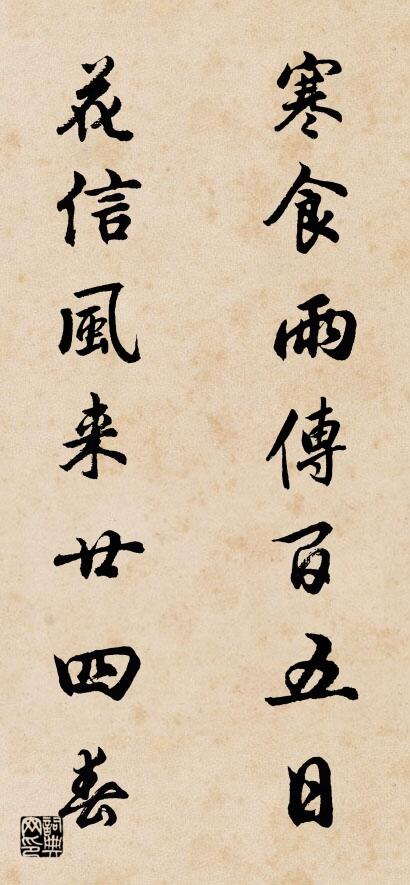 寒食雨傳百五日
花信風来廿四春
詞典網印